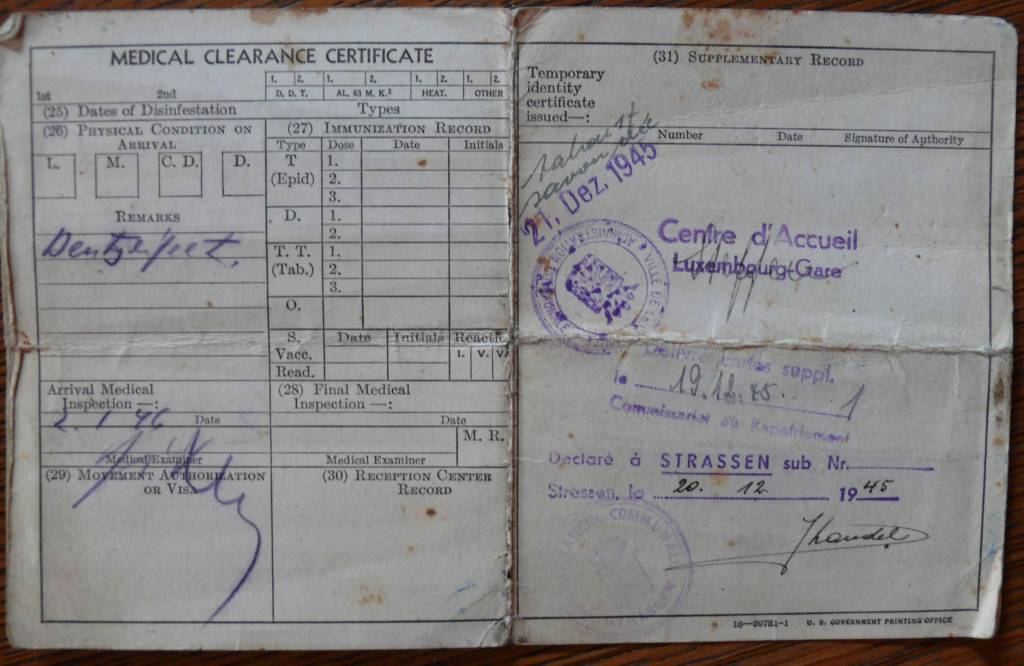 MEDICAL CLEARANCE CERTIFICATE
1st 2nd
1. 2. 1. 2. 1. 2. 1. 2.
D. D. T. AL. 63 M. K.³ HEAT. OTHER
(25) Dates of Disinfestation Types
(26) PHYSICAL CONDITION ON ARRIVAL
L. M. C. D. D.
REMARKS
(27) IMMUNIZATION RECORD
Type Dose Date Initials
T (Epid) 1.
2.
3.
D. 1.
2.
T. T. (Tab.) 1.
2.
3.
O.
S. Date Initials
Vacc. I. V. V
Read.
Arrival Medical
Inspection —:
2. 1 46 Date
Medical Examiner
(28) Final Medical
Inspection —:
Date
M. R.
Medical Examiner
(29) MOVEMENT AUTHORIZATION
OR VISA
(30) RECEPTION CENTER
RECORD
(31) SUPPLEMENTARY RECORD
Temporary
identity
certificate
issued—:
Number Date Signature of Authority
21. Dez. 1945
Centre d'Accueil
Luxembourg-Gare
VILLE DE
Délivré cartes suppl.
le 19.12.45. 1
Commissariat au Rapatriement
Déclaré à STRASSEN sub Nr.
Strassen, le 20. 12. 1945
COMMUNALE
STRASSEN
16—39781-1 U. S. GOVERNMENT PRINTING OFFICE